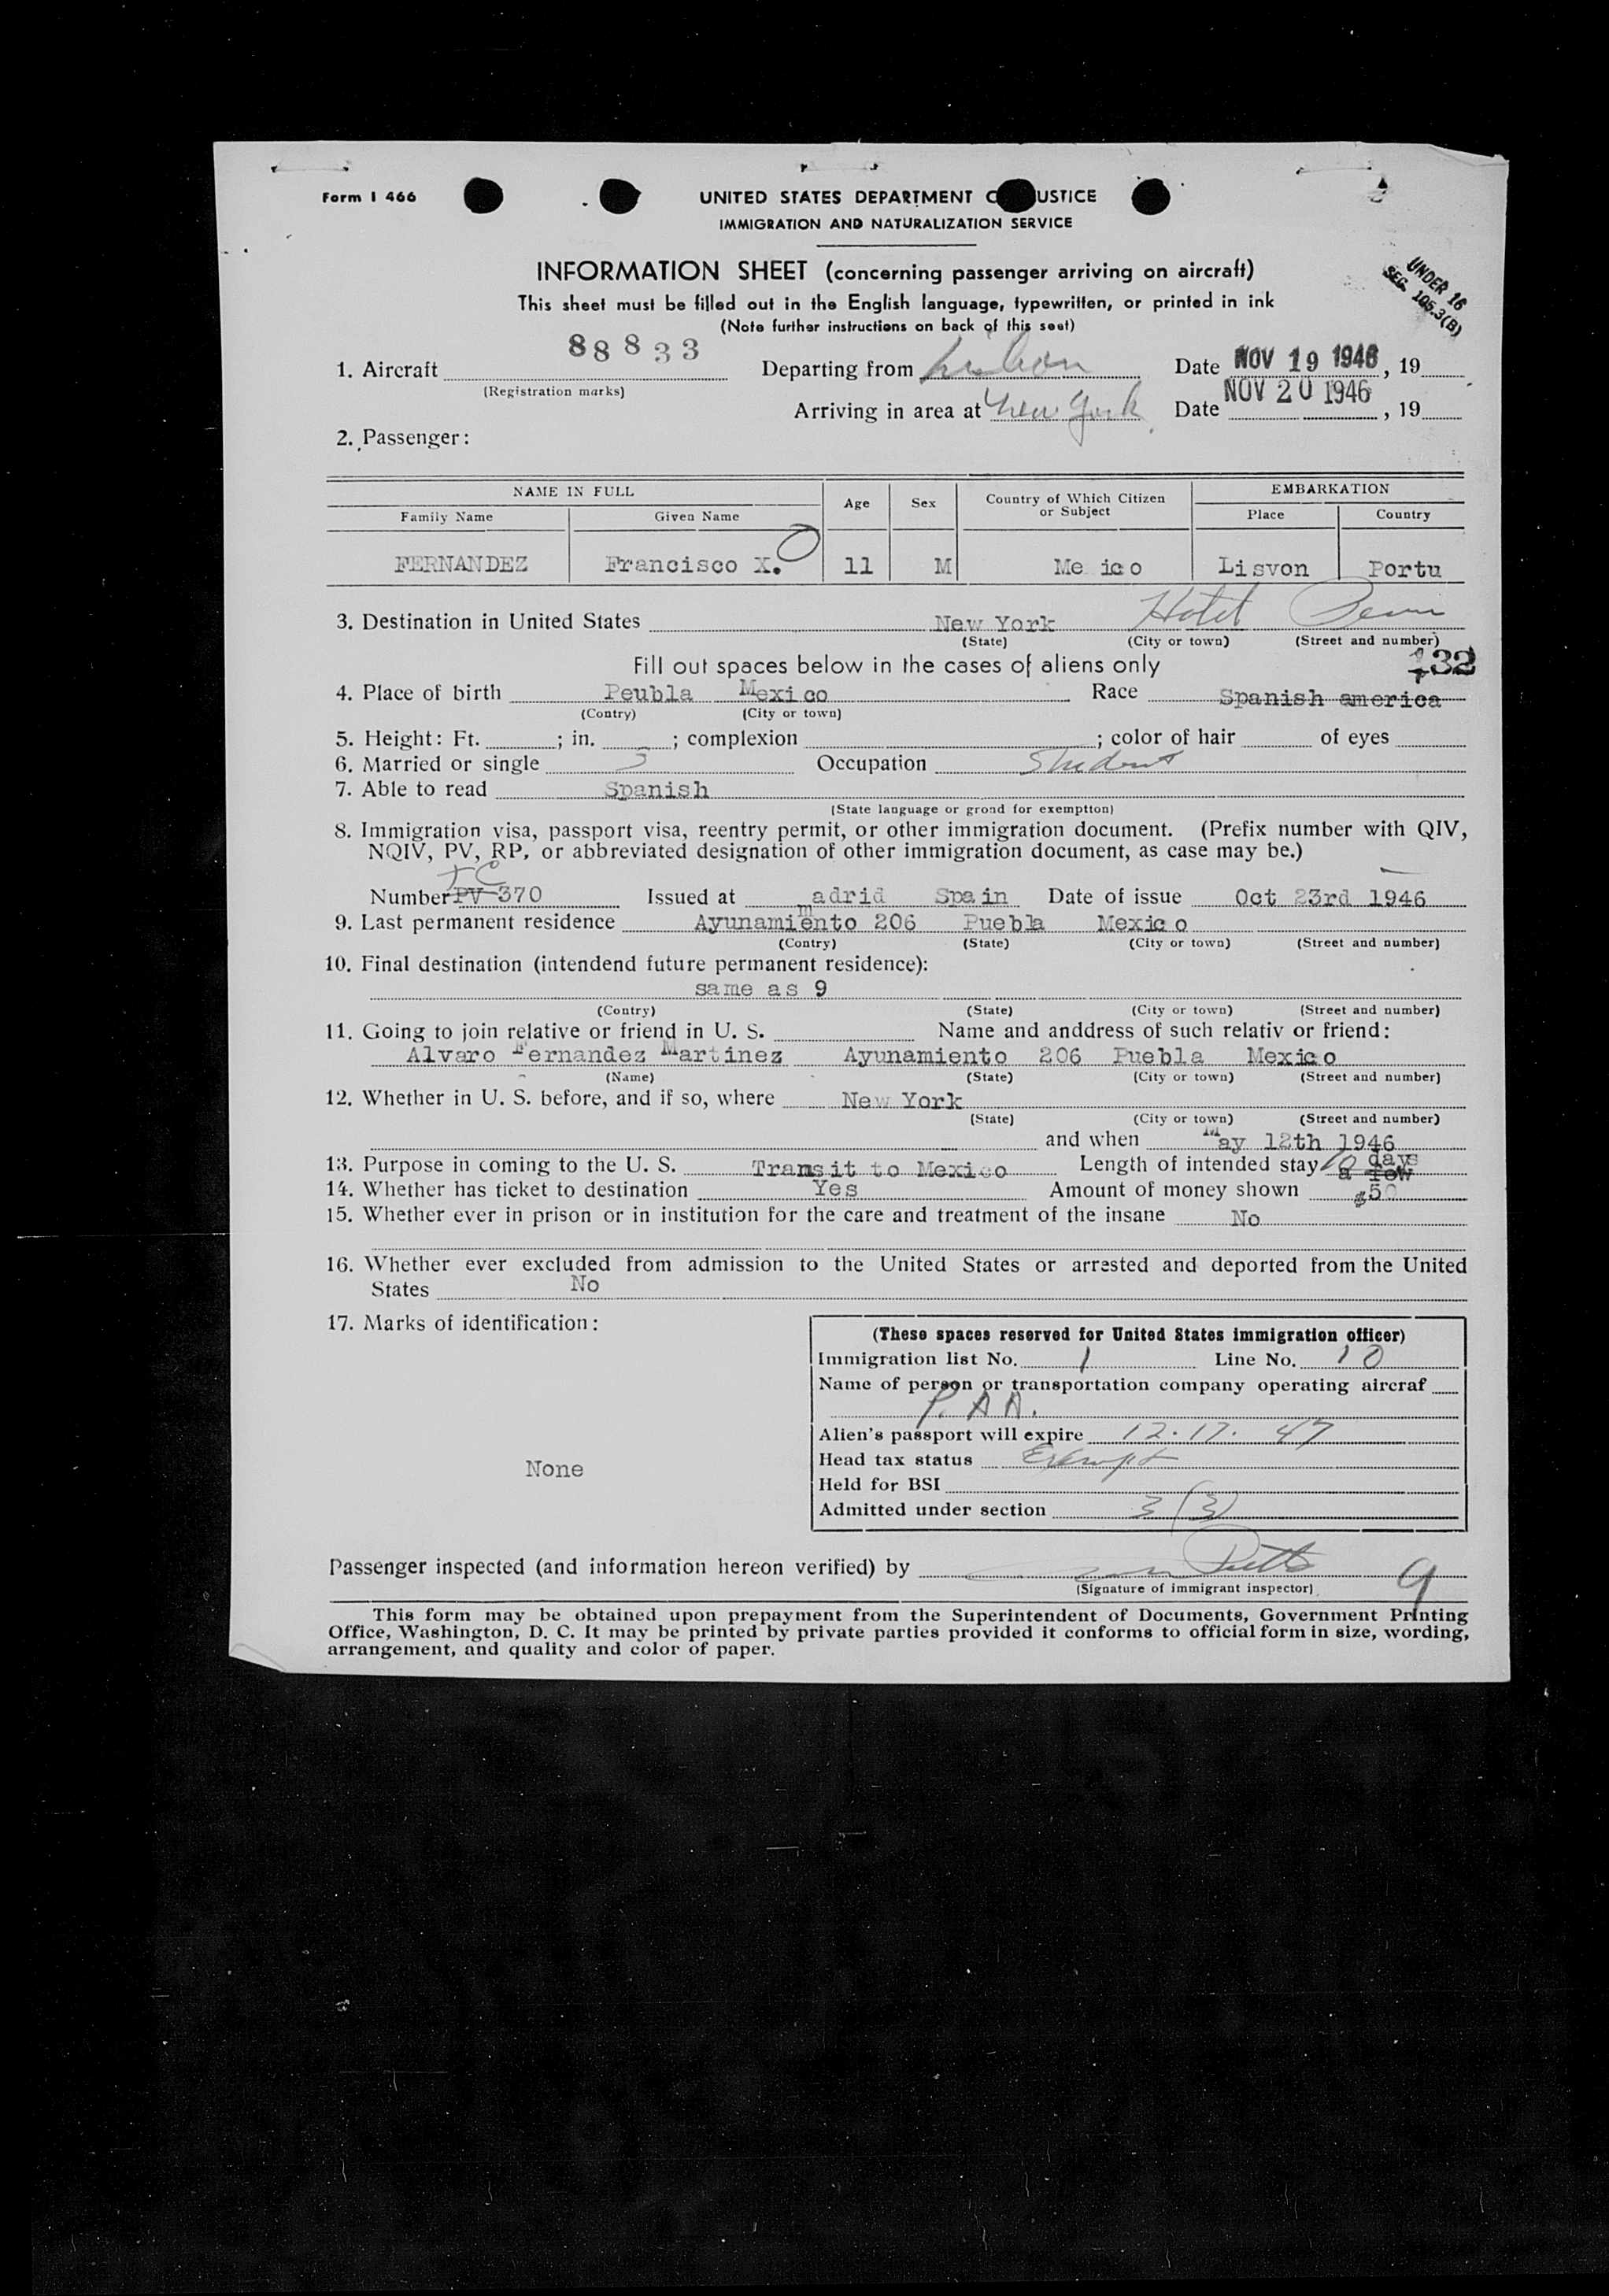 Form I 466
UNITED STATES DEPARTMENT O USTICE
IMMIGRATION AND NATURALIZATION SERVICE
INFORMATION SHEET (concerning passenger arriving on aircraft)
This sheet must be filled out in the English language, typewritten, or printed in ink
(Note further instructions on back of this seet)
UNDER 16
SEC. 105.3(B)
88833
1. Aircraft Departing from Lisbon Date NOV 19 1946, 19
(Registration marks)
Arriving in area at New York Date NOV 20 1946, 19
2. Passenger:
NAME IN FULL Age Sex Country of Which Citizen or Subject EMBARKATION
Family Name Given Name Place Country
FERNANDEZ Francisco X. 11 M Me ico Lisvon Portu
3. Destination in United States New York Hotel
(State) (City or town) (Street and number)
Fill out spaces below in the cases of aliens only 132
4. Place of birth Peubla Mexico Race Spanish america
(Contry) (City or town)
5. Height: Ft. ; in. ; complexion ; color of hair of eyes
6. Married or single S Occupation Student
7. Able to read Spanish
(State language or grond for exemption)
8. Immigration visa, passport visa, reentry permit, or other immigration document. (Prefix number with QIV,
NQIV, PV, RP, or abbreviated designation of other immigration document, as case may be.)
TC
Number PV-370 Issued at madrid Spain Date of issue Oct 23rd 1946
9. Last permanent residence Ayunamiento 206 Puebla Mexico
(Contry) (State) (City or town) (Street and number)
10. Final destination (intendend future permanent residence):
same as 9
(Contry) (State) (City or town) (Street and number)
11. Going to join relative or friend in U. S. Name and anddress of such relativ or friend:
Alvaro Fernandez Martinez Ayunamiento 206 Puebla Mexico
(Name) (State) (City or town) (Street and number)
12. Whether in U. S. before, and if so, where New York
(State) (City or town) (Street and number)
and when May 12th 1946
13. Purpose in coming to the U. S. Transit to Mexico Length of intended stay 10 a few days
14. Whether has ticket to destination Yes Amount of money shown $50
15. Whether ever in prison or in institution for the care and treatment of the insane No
16. Whether ever excluded from admission to the United States or arrested and deported from the United
States No
17. Marks of identification:
None
(These spaces reserved for United States immigration officer)
Immigration list No. 1 Line No. 10
Name of person or transportation company operating aircraf
P.AA.
Alien's passport will expire 12.17. 47
Head tax status Exempt
Held for BSI
Admitted under section 3 (3)
Passenger inspected (and information hereon verified) by
(Signature of immigrant inspector) 9
This form may be obtained upon prepayment from the Superintendent of Documents, Government Printing
Office, Washington, D. C. It may be printed by private parties provided it conforms to official form in size, wording,
arrangement, and quality and color of paper.